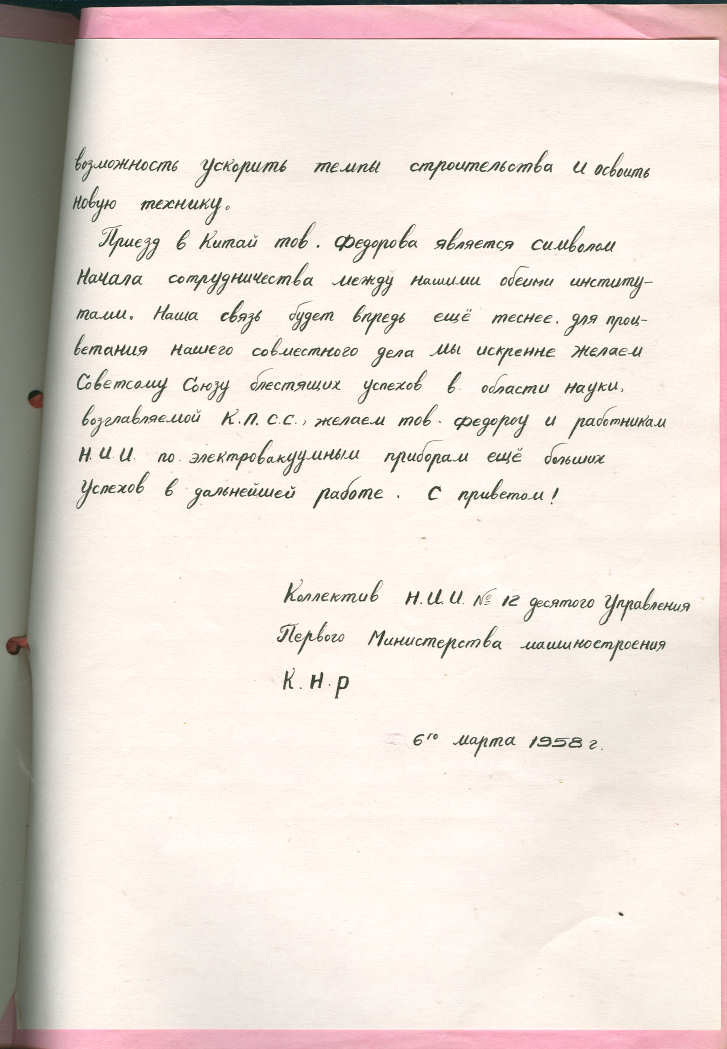 возможность ускорить темпы строительства и освоить
новую технику.
Приезд в Китай тов. Федорова является символом
начала сотрудничества между нашими обеими институ-
тами. Наша связь будет впредь ещё теснее. для проц-
ветания нашего совместного дела мы искренне желаем
Советсому Союзу блестящих успехов в области науки,
возглавляемой К.П.С.С., желаем тов. федороу и работникам
Н.И.И. по электровакуумным приборам ещё больших
успехов в дальнейшей работе. С приветом!
Коллектив Н.И.И. № 12 десятого Управления
Первого Министерства машиностроения
К.Н.Р
6го марта 1958 г.